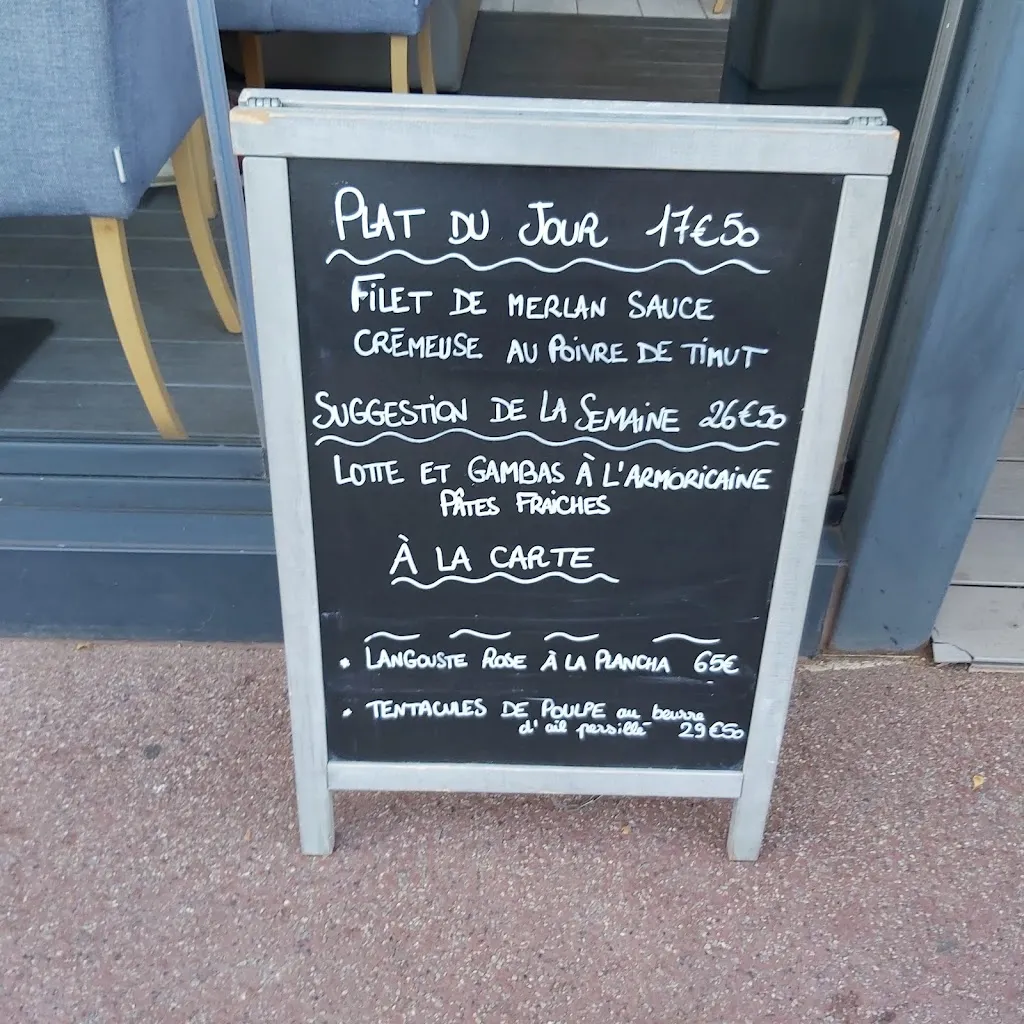 PLAT DU JOUR 17€50
FILET DE MERLAN SAUCE
CRÊMEUSE AU POIVRE DE TIMUT
SUGGESTION DE LA SEMAINE 26€50
LOTTE ET GAMBAS À L'ARMORICAINE
PÂTES FRAICHES
À LA CARTE
• LANGOUSTE ROSE À LA PLANCHA 65€
• TENTACULES DE POULPE au beurre
d'ail persillé 29€50